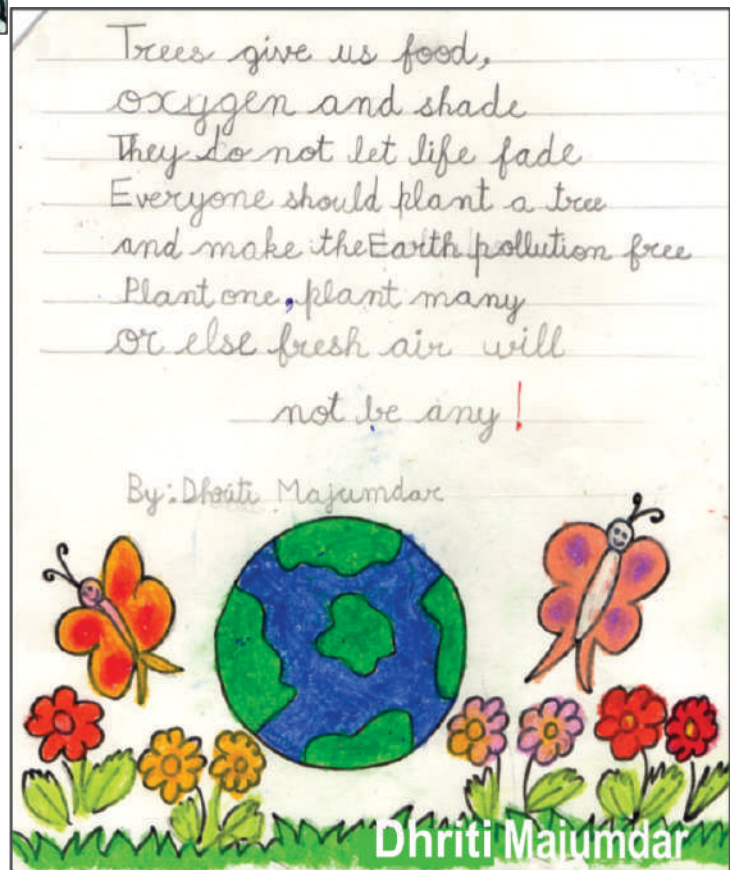 Trees give us food,
oxygen and shade
They do not let life fade
Everyone should plant a tree
and make the Earth pollution free
Plant one, plant many
or else fresh air will
not be any!
By: Dhriti Majumdar
Dhriti Majumdar